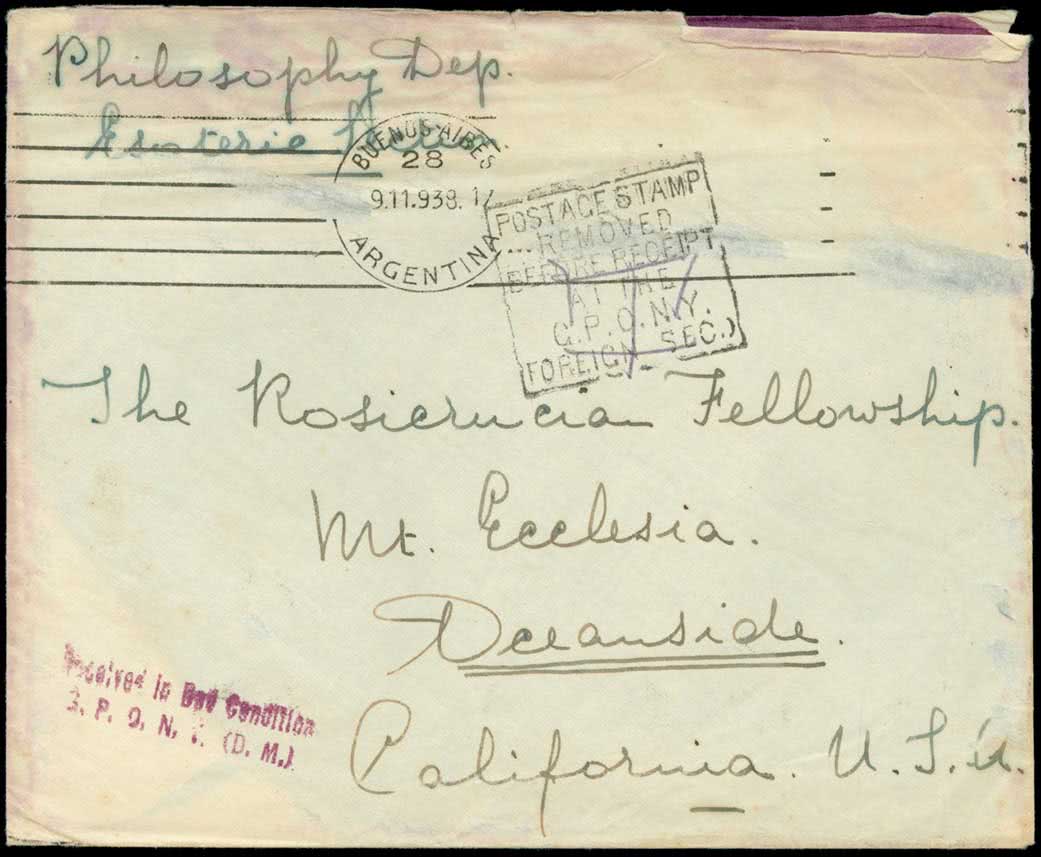 Philosophy Dep.
Esoteric
BUENOS AIRES
28
9.11.938. 17
ARGENTINA
POSTAGE STAMP
... REMOVED
BEFORE RECEIPT
AT THE
G.P.O.N.Y.
(FOREIGN SEC.)
The Rosicrucian Fellowship.
Mt. Ecclesia.
Oceanside.
California. U.S.A.
Received in Bad Condition
G. P. O. N. Y. (D. M.)